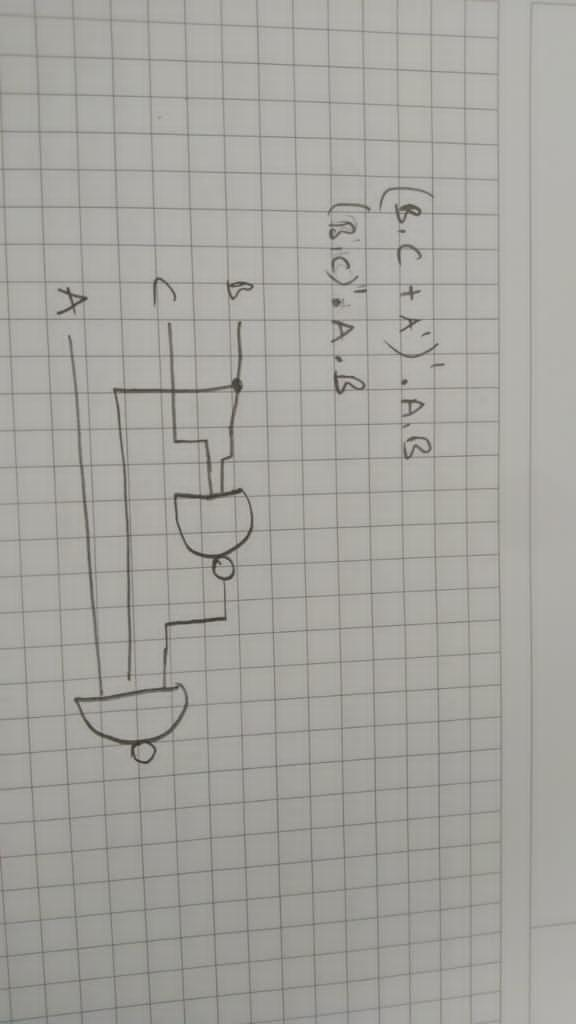 (B.C + A')' . A.B
(B.C)' . A . B
B
C
A